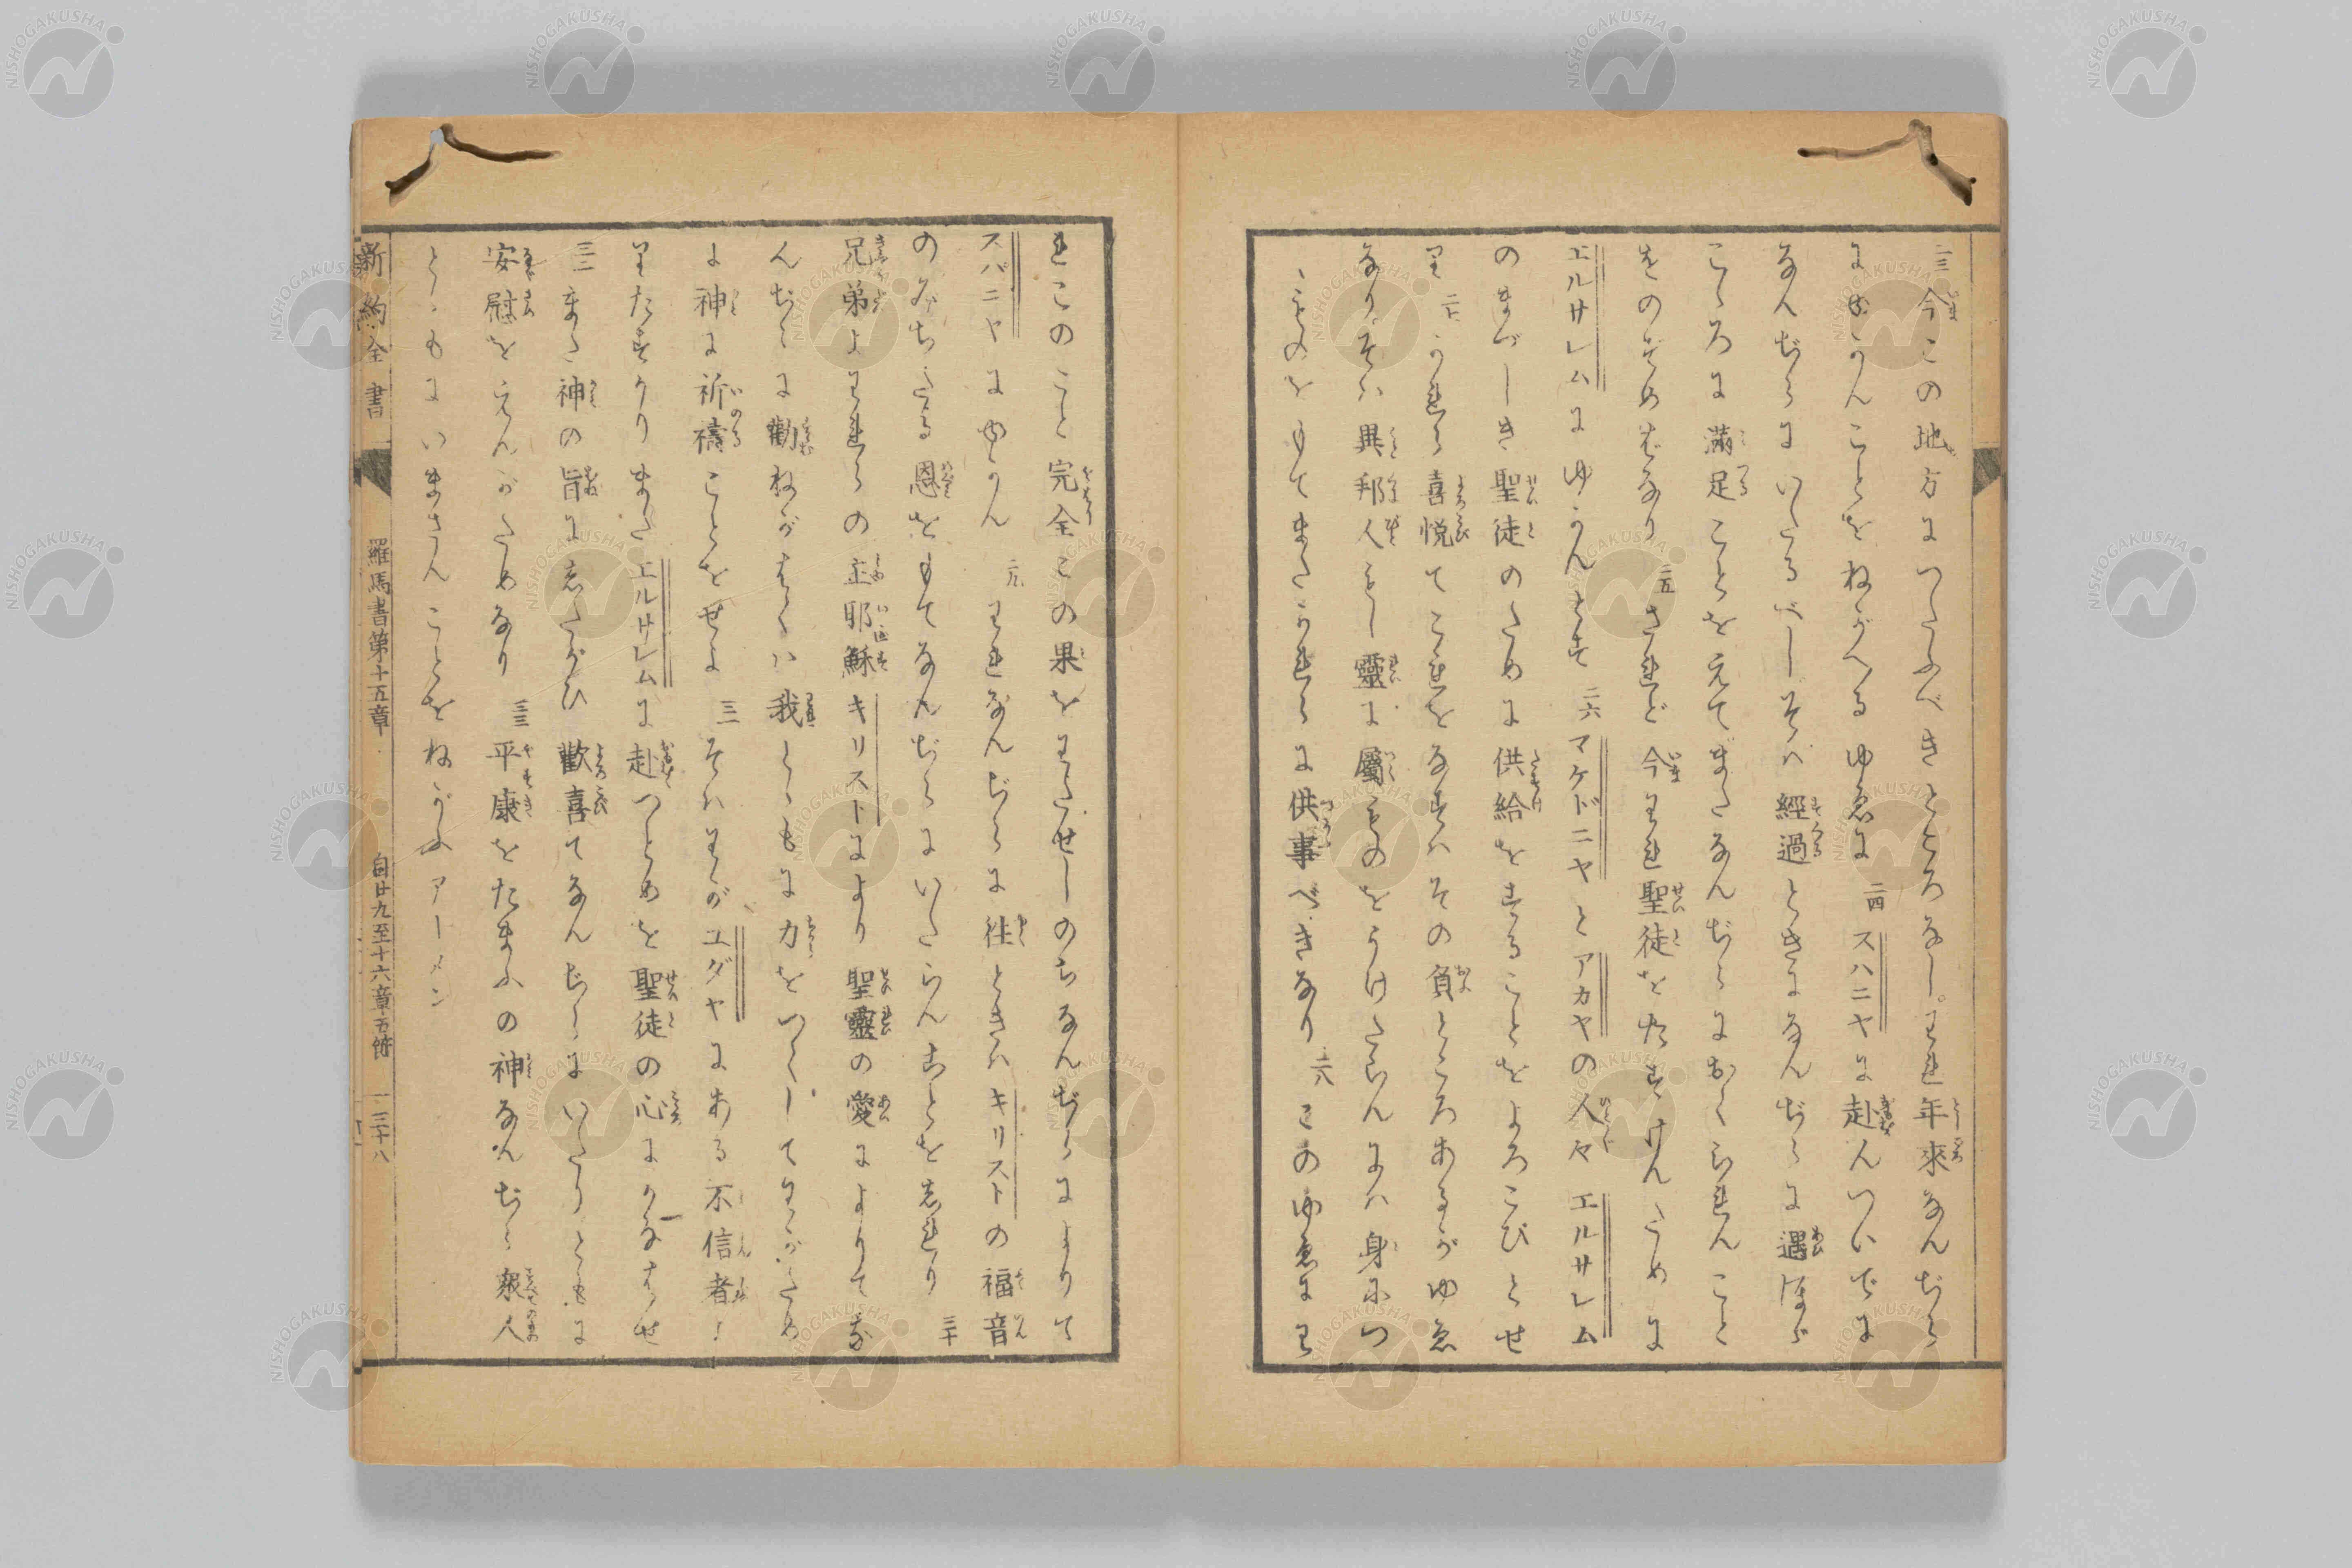 二三 今この地方につたふべきところなし。われ年來なんぢら
にゆかんことをねがへるゆゑに 二四 スハニヤに赴んついでに
なんぢらにいたるべしそハ經過ときになんぢらに遇ほゞ
こゝろに滿足ことをえてまたなんぢらにおくられんこと
をのぞめばなり 二五 されど今われ聖徒をたすけんために
エルサレムにゆかんとす 二六 マケドニヤとアカヤの人々エルサレム
のまづしき聖徒のために供給をすることをよろこびとせ
り 二七 かれら喜悦てこれをなすハその負ところあるがゆゑ
なりそハ異邦人もし靈に屬ものをうけたらんにハ身につ
くものをもてまたかれらに供事べきなり 二八 このゆゑにわ
れこのこと完全この果をわたせしのちなんぢらによりて
スパニヤにゆかん 二九 われなんぢらに徃ときハキリストの福音
のみちたる恩をもてなんぢらにいたらんことを志れり 三十
兄弟よわれらの主耶穌キリストにより聖靈の愛によりてな
んぢらに勸ねがはくハ我とゝもに力をつくしてわがため
に神に祈禱ことをせよ 三一 そハわがユダヤにある不信者よ
りたすかりまたエルサレムに赴つとめを聖徒の心にかなはせ
三二 また神の旨に志たがひ歡喜てなんぢらにいたりともに
安慰をえんがためなり 三三 平康をたまふの神なんぢら衆人
とゝもにいまさんことをねがふアーメン
新約全書 羅馬書第十五章 自廿九至十六章五節 一三十八
NISHOGAKUSHA